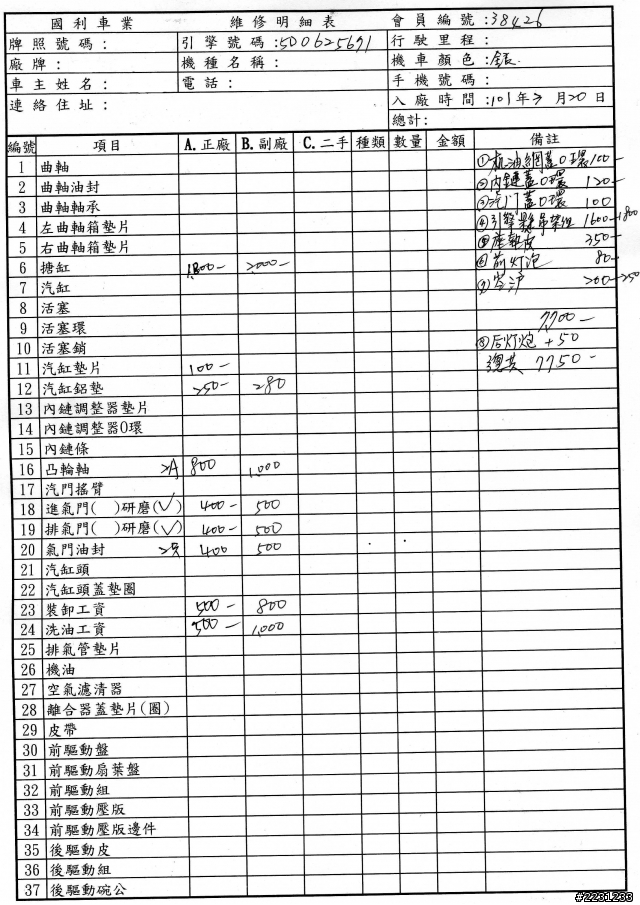 國利車業 維修明細表 會員編號:38426
牌照號碼: 引擎號碼:5D0625671 行駛里程:
廠牌: 機種名稱: 機車顏色:銀
車主姓名: 電話: 手機號碼:
連絡住址: 入廠時間:101年 月20日
總計:
編號 項目 A.正廠 B.副廠 C.二手 種類 數量 金額 備註
1 曲軸 ①机油網蓋O環 100-
2 曲軸油封 ②內鏈蓋O環 120-
3 曲軸軸承 ③汽門蓋O環 100
4 左曲軸箱墊片 ④引擎 吊架組 1600-1800
5 右曲軸箱墊片 ⑤座墊皮 350-
6 搪缸 1800- 2000- ⑥前灯泡 80-
7 汽缸 ⑦ 200-250
8 活塞
9 活塞環 7700-
10 活塞銷 ⑧后灯炮 +50
11 汽缸墊片 100- 總共 7750-
12 汽缸鋁墊 250- 280
13 內鏈調整器墊片
14 內鏈調整器O環
15 內鏈條
16 凸輪軸 800 1,000
17 汽門搖臂
18 進氣門( )研磨(✓) 400- 500
19 排氣門( )研磨(✓) 400- 500
20 氣門油封 2支 400 500
21 汽缸頭
22 汽缸頭蓋墊圈
23 裝卸工資 500- 800
24 洗油工資 500- 1,000
25 排氣管墊片
26 機油
27 空氣濾清器
28 離合器蓋墊片(圈)
29 皮帶
30 前驅動盤
31 前驅動扇葉盤
32 前驅動組
33 前驅動壓版
34 前驅動壓版邊件
35 後驅動皮
36 後驅動組
37 後驅動碗公
#2231233